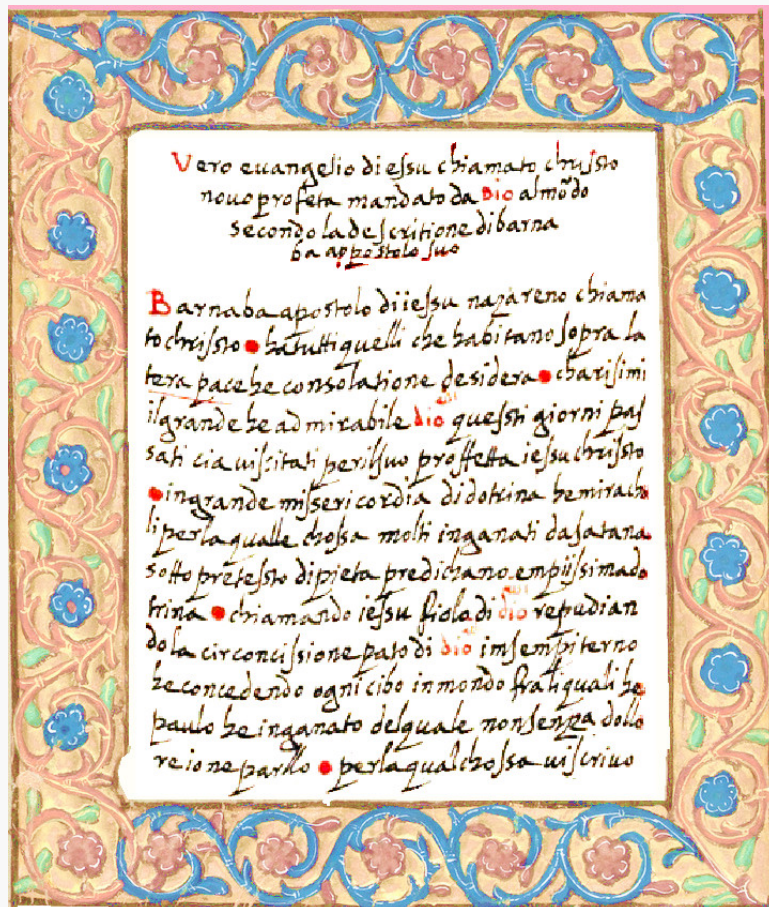 Vero euangelio di essu chiamato chrissto
nouo profeta mandato da DIO al mōdo
secondo la descritione di barna
ba appostolo suo
Barnaba apostolo di iessu nazareno chiama
to chrissto ha tutti quelli che habitano sopra la
tera pace he consolatione desidera charisimi
il grande he admirabile dio quessti giorni pas
sati cia uiscitati per il suo proffetta iessu chrissto
in grande missericordia di dotrina he mirach
li per la qualle chossa molti inganati da satana
sotto pretessto di pieta predichano empiissima do
trina chiamando iessu fiolo di dio repudian
do la circoncissione pato di dio in sempiterno
he concedendo ogni cibo inmondo fra li quali he
paulo he inganato del quale non senza dollo
re ione parllo per la qual chossa ui scriuo